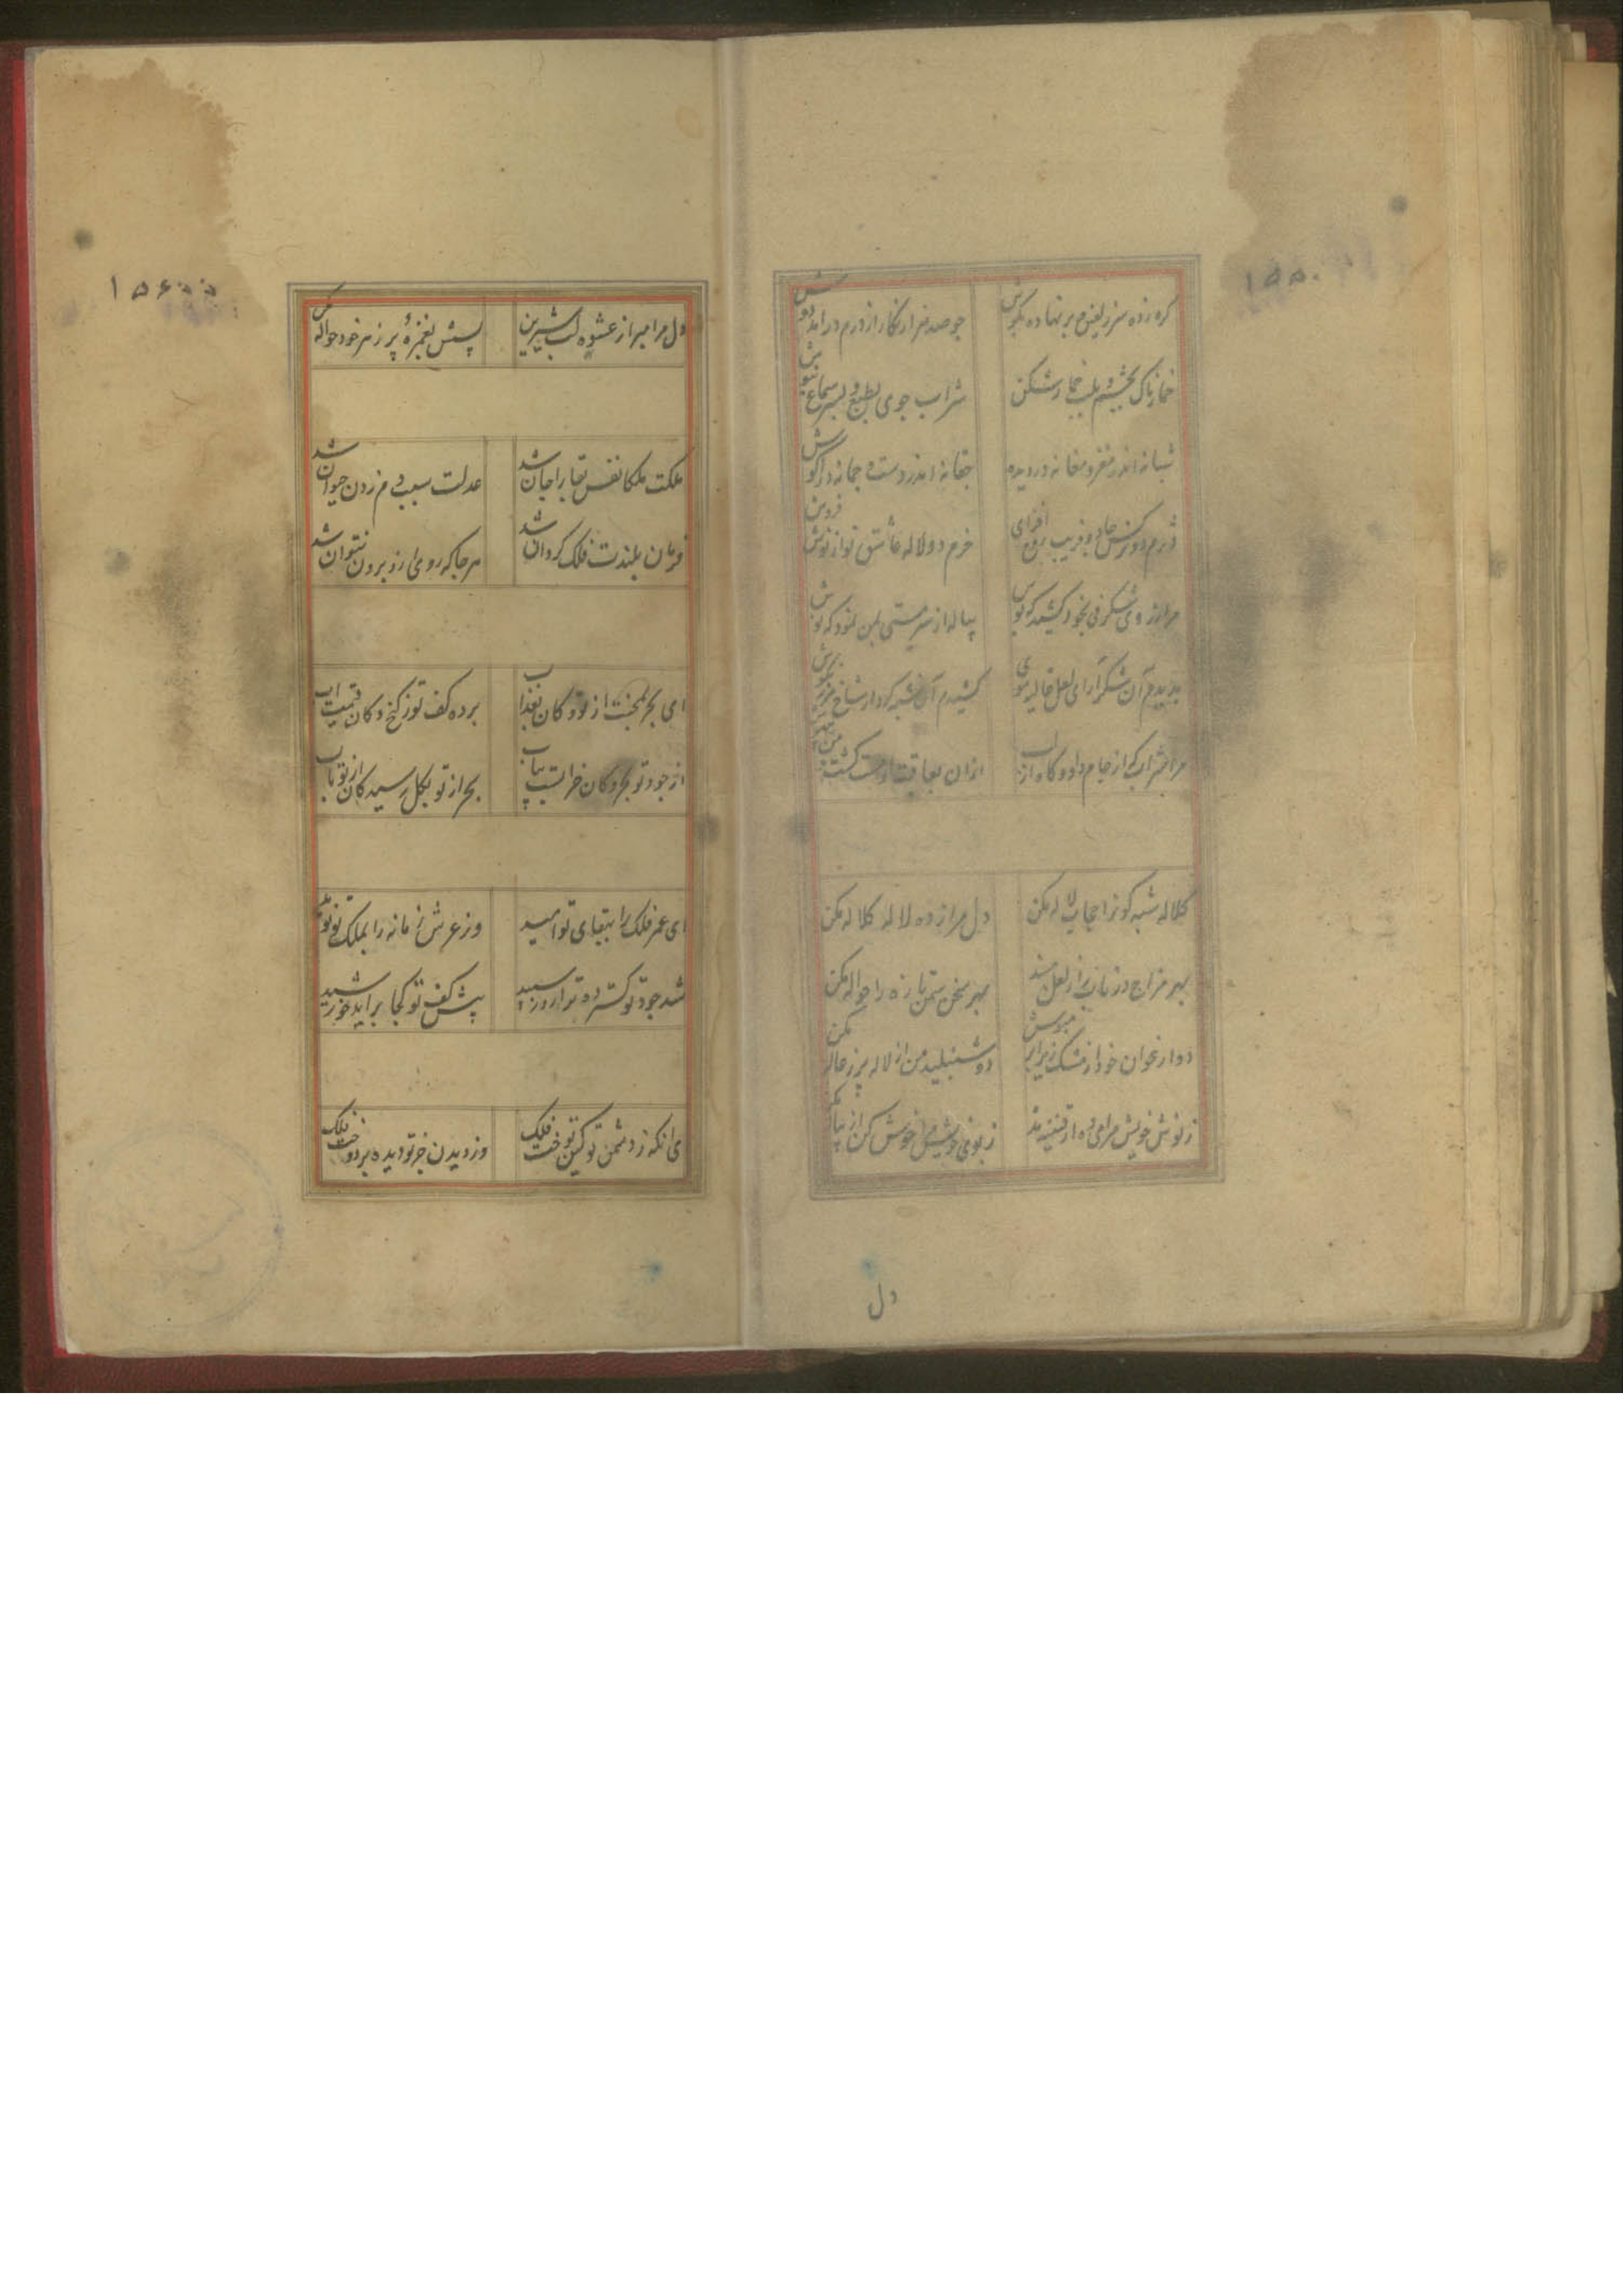 ۱۵۵۰۰
گره زده سر زلفین و بر نهاده بگوش
چو صد هزار نگار از درم درآمد دوش
خمارناک بچشم و بلب خمار شکن
شراب جوی بطبع و بسر سماع نیوش
شبانه اندر مغز و مغانه در دیده
چغانه اندر دست و چمانه در آغوش
دژم دو نرکس جادو فریب روح افزای
خرم دو لاله عاشق نواز
مرا ز روی شکرفی بخود کشید که بوس
پیاله از سر مستی بمن نمود که نوش
کشیدم آن شبه کردار شاخ
مرا شراب که از جام داد و کاه از لب
ازان بعاقبت کشت
کلاله شبه کونرا حجاب لاله مکن
دل مرا زده لاله کلاله مکن
بهر مزاج در ناب را ز لعل
بهر سخن ستم تازه را حواله مکن
دو ارغوان خود از مشک زیر ابر مپوش
دو شنبلید من از لاله پر ز ژاله مکن
ز نوش خویش مرا می ده از قنینه مده
مرا خوش کن از پیاله مکن
دل
۱۵۶۰۰
دل مرا مبر از عشوه لب شیرین
پسش بغمزه پر ز سر خود حواله مکن
ملکت ملکا نفس بقا را جان شد
عدلت سبب دم زدن حیوان شد
فرمان بلندت فلک کردان شد
هر جا که روی ازو برون نتوان شد
ای بحر بمحنت از تو و کان بعذاب
برده کف تو ز کنج و کان قیمت و آب
از جود تو بحر و کان خرابست بیاب
بحر از تو بکل رسید کان از تو بآب
ای عمر فلک را ببقای تو امید
وز عرش زمانه را بملک تو نوید
شد جود تو کسترده تر از روز سپید
پیش کف تو کجا براید خورشید
ای انکه ز دشمن تو کین توخت فلک
وز دیدن جز تو دیده بر دوخت فلک